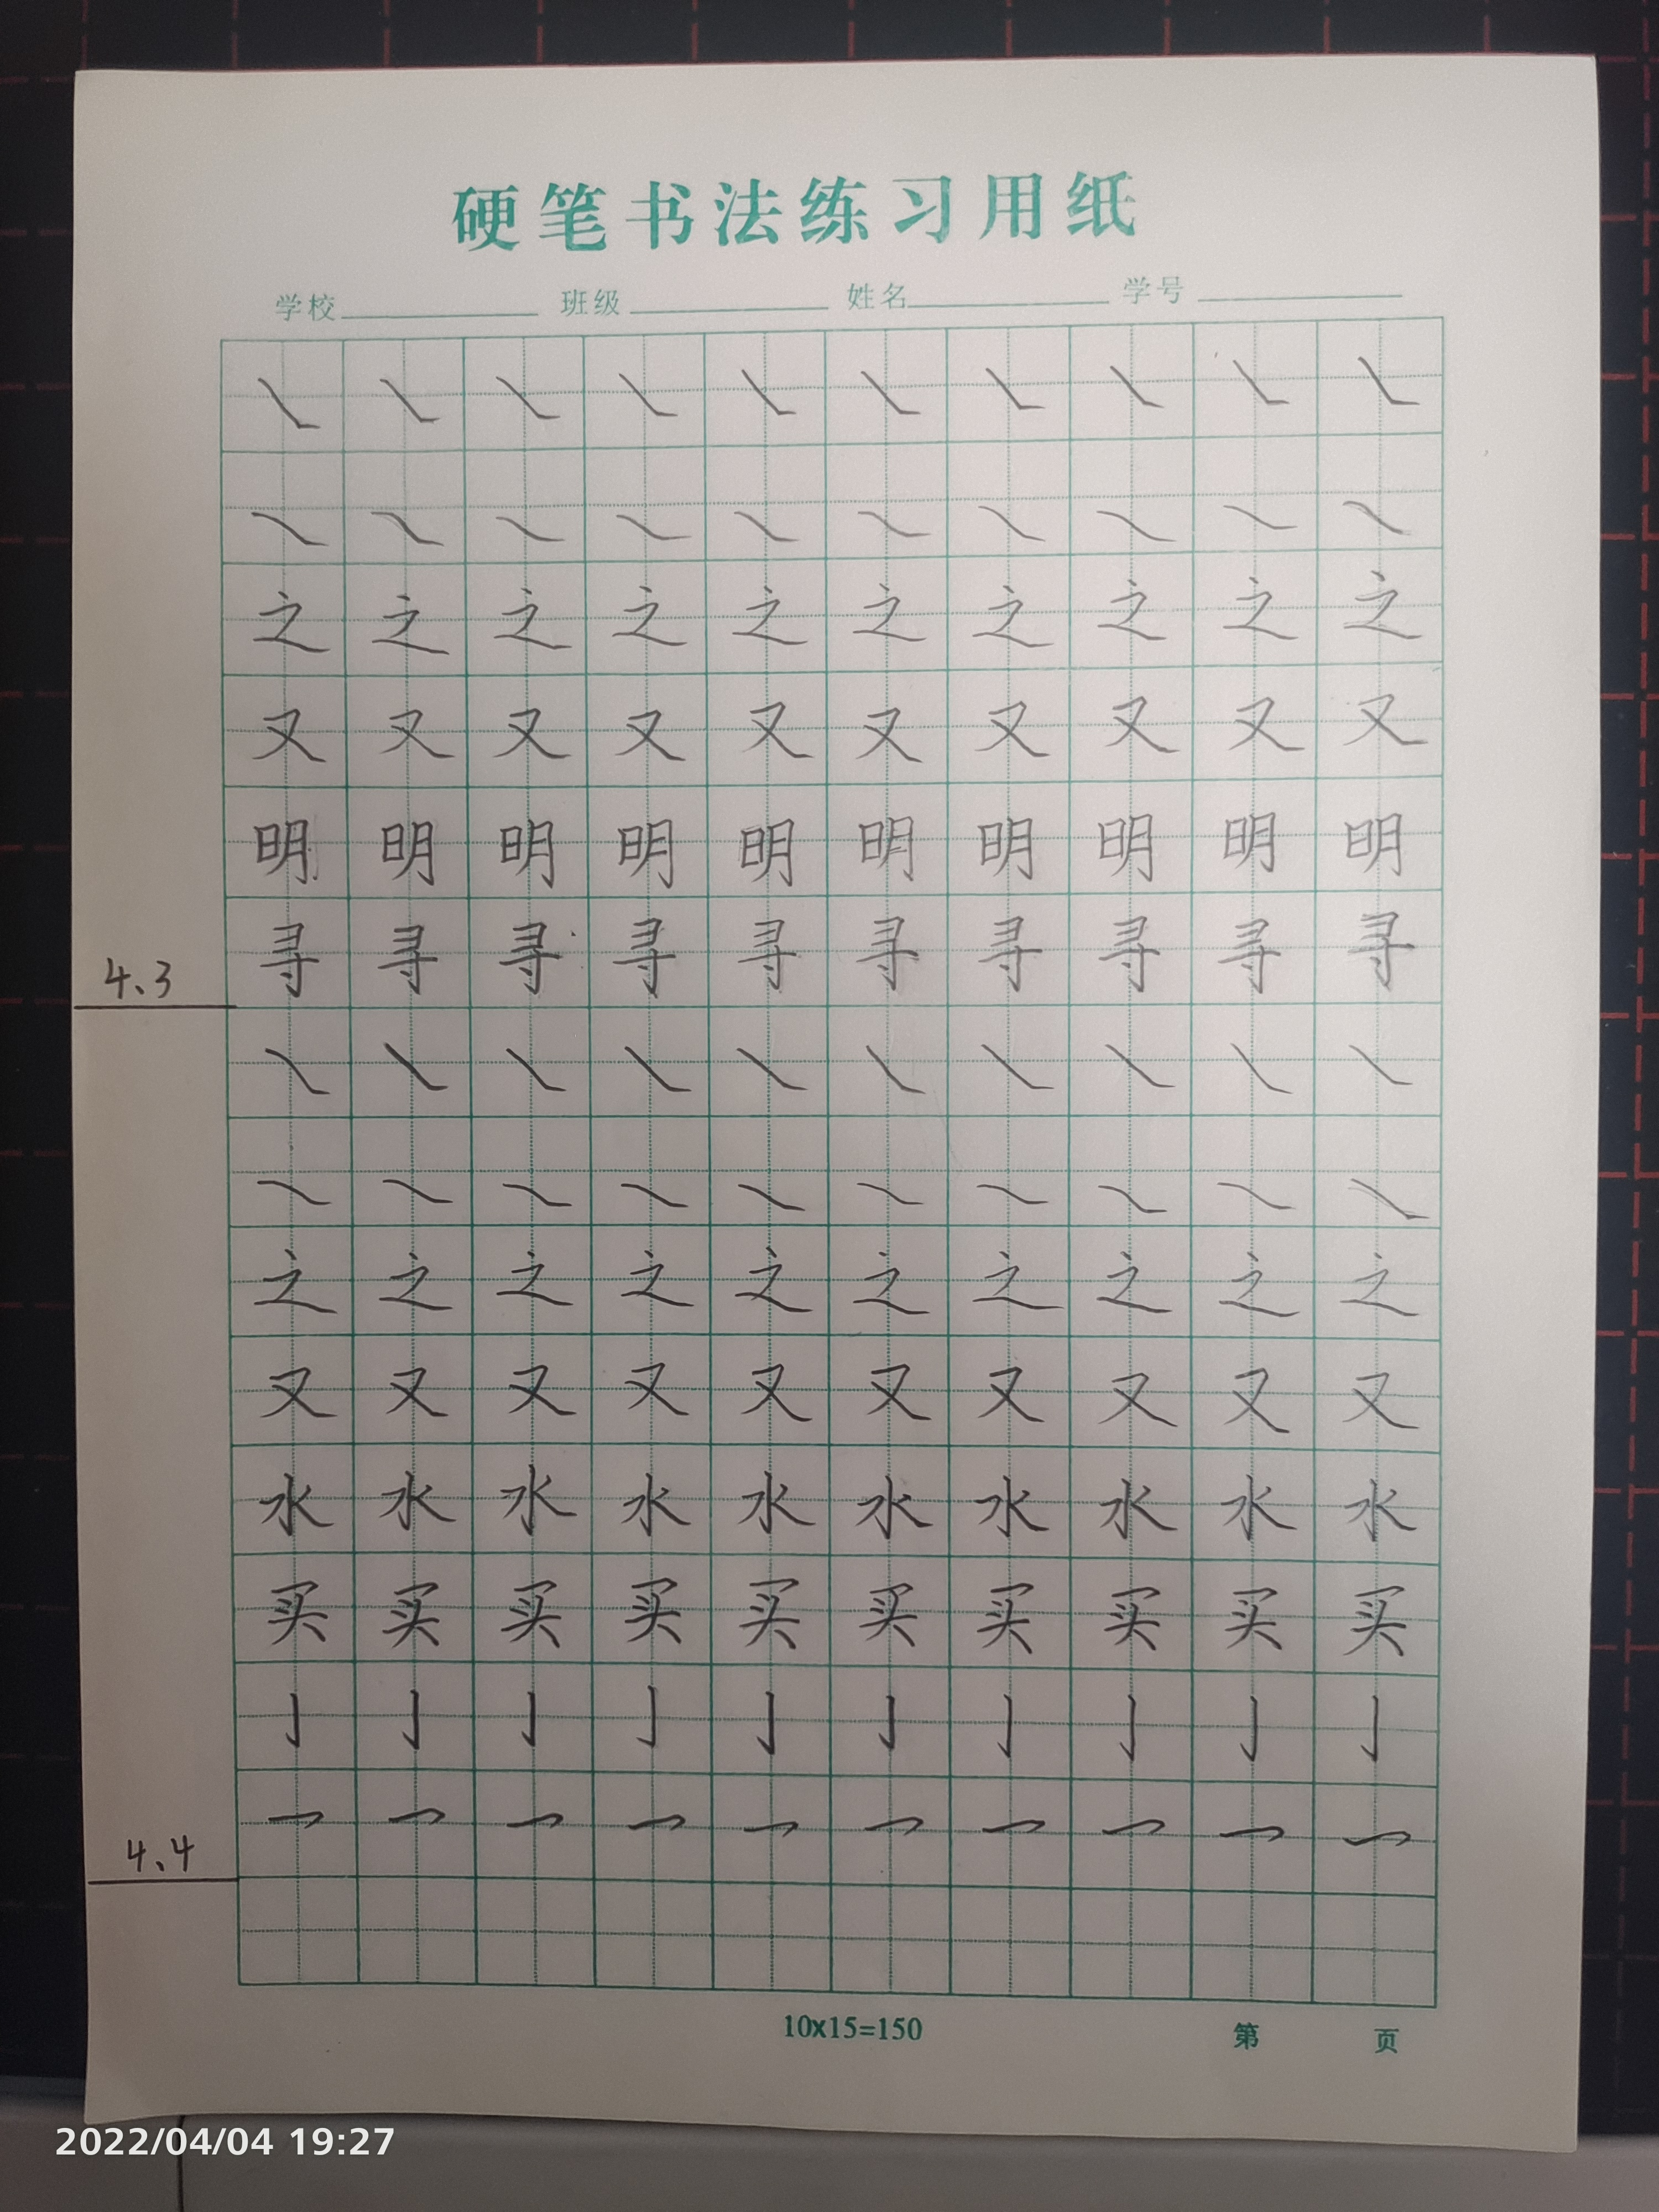 硬笔书法练习用纸
学校 班级 姓名 学号
㇏ ㇏ ㇏ ㇏ ㇏ ㇏ ㇏ ㇏ ㇏ ㇏
㇏ ㇏ ㇏ ㇏ ㇏ ㇏ ㇏ ㇏ ㇏ ㇏
之 之 之 之 之 之 之 之 之 之
又 又 又 又 又 又 又 又 又 又
明 明 明 明 明 明 明 明 明 明
4、3 寻 寻 寻 寻 寻 寻 寻 寻 寻 寻
㇏ ㇏ ㇏ ㇏ ㇏ ㇏ ㇏ ㇏ ㇏ ㇏
㇏ ㇏ ㇏ ㇏ ㇏ ㇏ ㇏ ㇏ ㇏ ㇏
之 之 之 之 之 之 之 之 之 之
又 又 又 又 又 又 又 又 又 又
水 水 水 水 水 水 水 水 水 水
买 买 买 买 买 买 买 买 买 买
亅 亅 亅 亅 亅 亅 亅 亅 亅 亅
4、4 乛 乛 乛 乛 乛 乛 乛 乛 乛 乛
10x15=150 第 页
2022/04/04 19:27